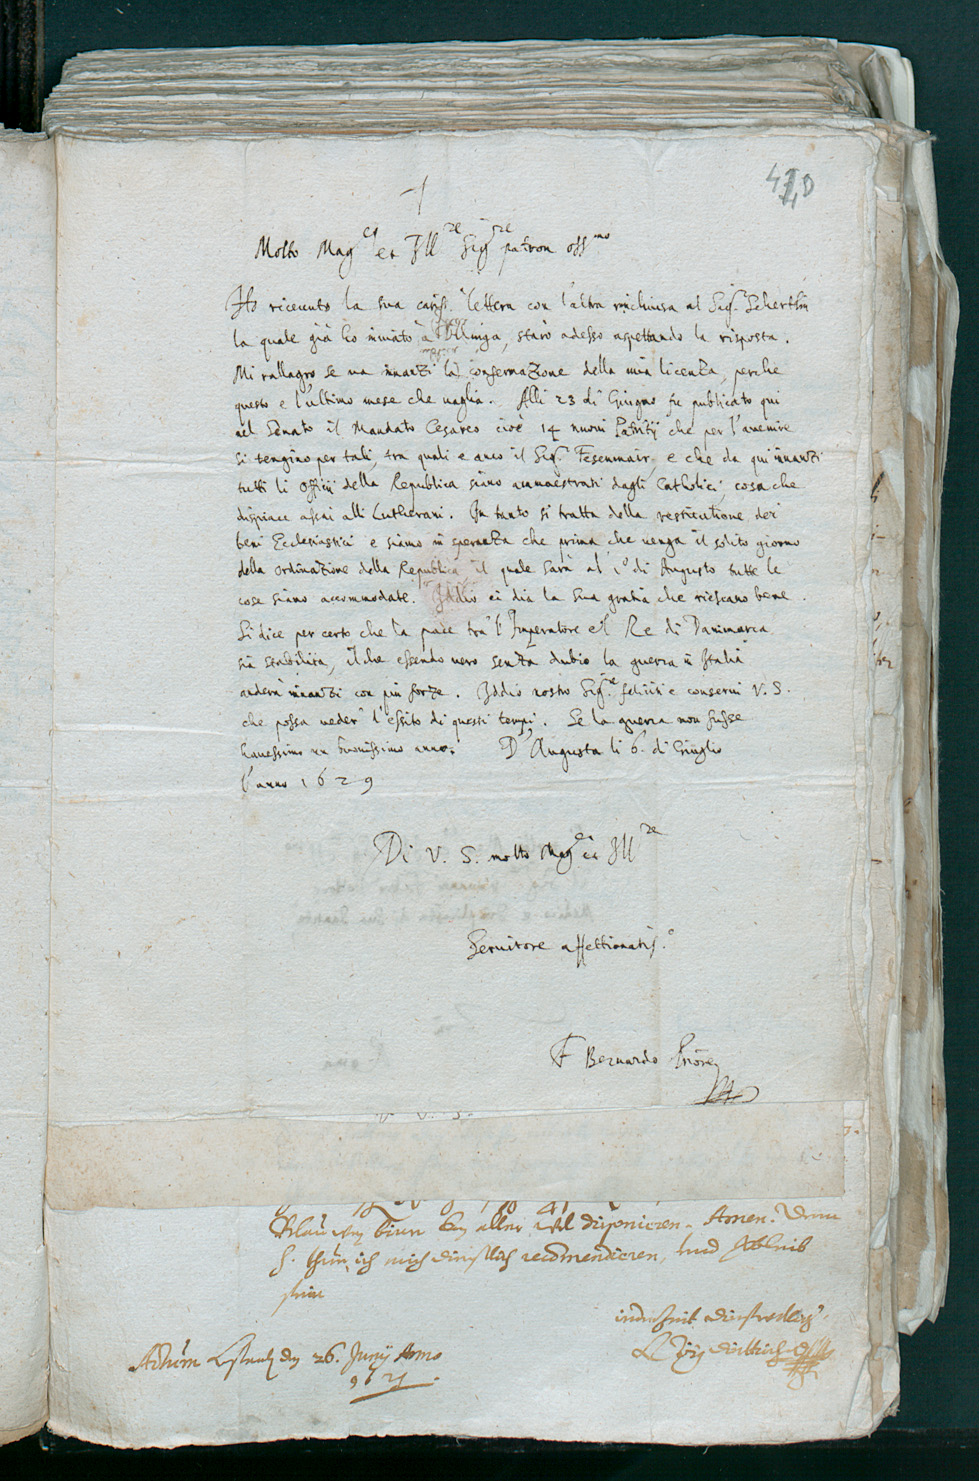 410
Molto Mag.co et Ill.re Sig.re patron oss.mo
Ho riceuuto la sua cariss. lettera con l'altra inchiusa al Sig.r Schertlin
la quale già ho inuiato à Ollinga, starò adesso aspettando la risposta.
Mi rallagro se ua inanzi la conseruazione della mia licenza, perche
questo e l'ultimo mese che uaglia. Alli 23 di Giugno fu publicato qui
nel Senato il Mandato Cesareo cioè 14 nuoui Patritij che per l'auenire
si tengino per tali, tra quali e anco il Sig.r Fesenmair, e che da qui inanzi
tutti li Offitij della Republica siano amaestrati dagli Catholici, cosa che
dispiace assai alli Lutherani. In tanto si tratta della restitutione dei
beni Ecclesiastici e siamo in speranza che prima che uenga il solito giorno
della ordinatione della Republica il quale sarà al i.o di Augusto tutte le
cose siano accommodate. Iddio ci dia la sua gratia che riescano bene.
Si dice per certo che la pace tra l'Imperatore e'l Re di Danimarca
sia stabilita, il che essendo uero senza dubio la guerra in Italia
anderà inanzi con più forze. Iddio nostro Sig.re feliciti e conserui V. S.
che possa ueder l'essito di questi tempi. Se la guerra non fusse
hauessimo un buonissimo anno. D'Augusta li 6. di Giuglio
l'anno 1629
Di V. S. molto Mag.ca et Ill.re
Seruitore affettionatiss.o
F Bernardo Priore
V. S.
aller disponieren. Amen. Dem
H. thun ich mich dienstlich recomendieren, und
sein
Actum den 26. Junij Anno